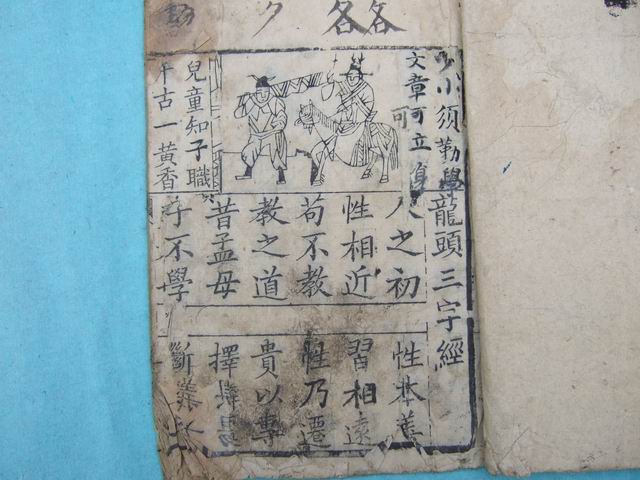 各各
少小須勤學
文章可立身
可
兒童知子職
千古一黃香
龍頭三字經
人之初
性本善
性相近
習相遠
苟不教
性乃遷
教之道
貴以專
昔孟母
擇鄰
子不學
斷